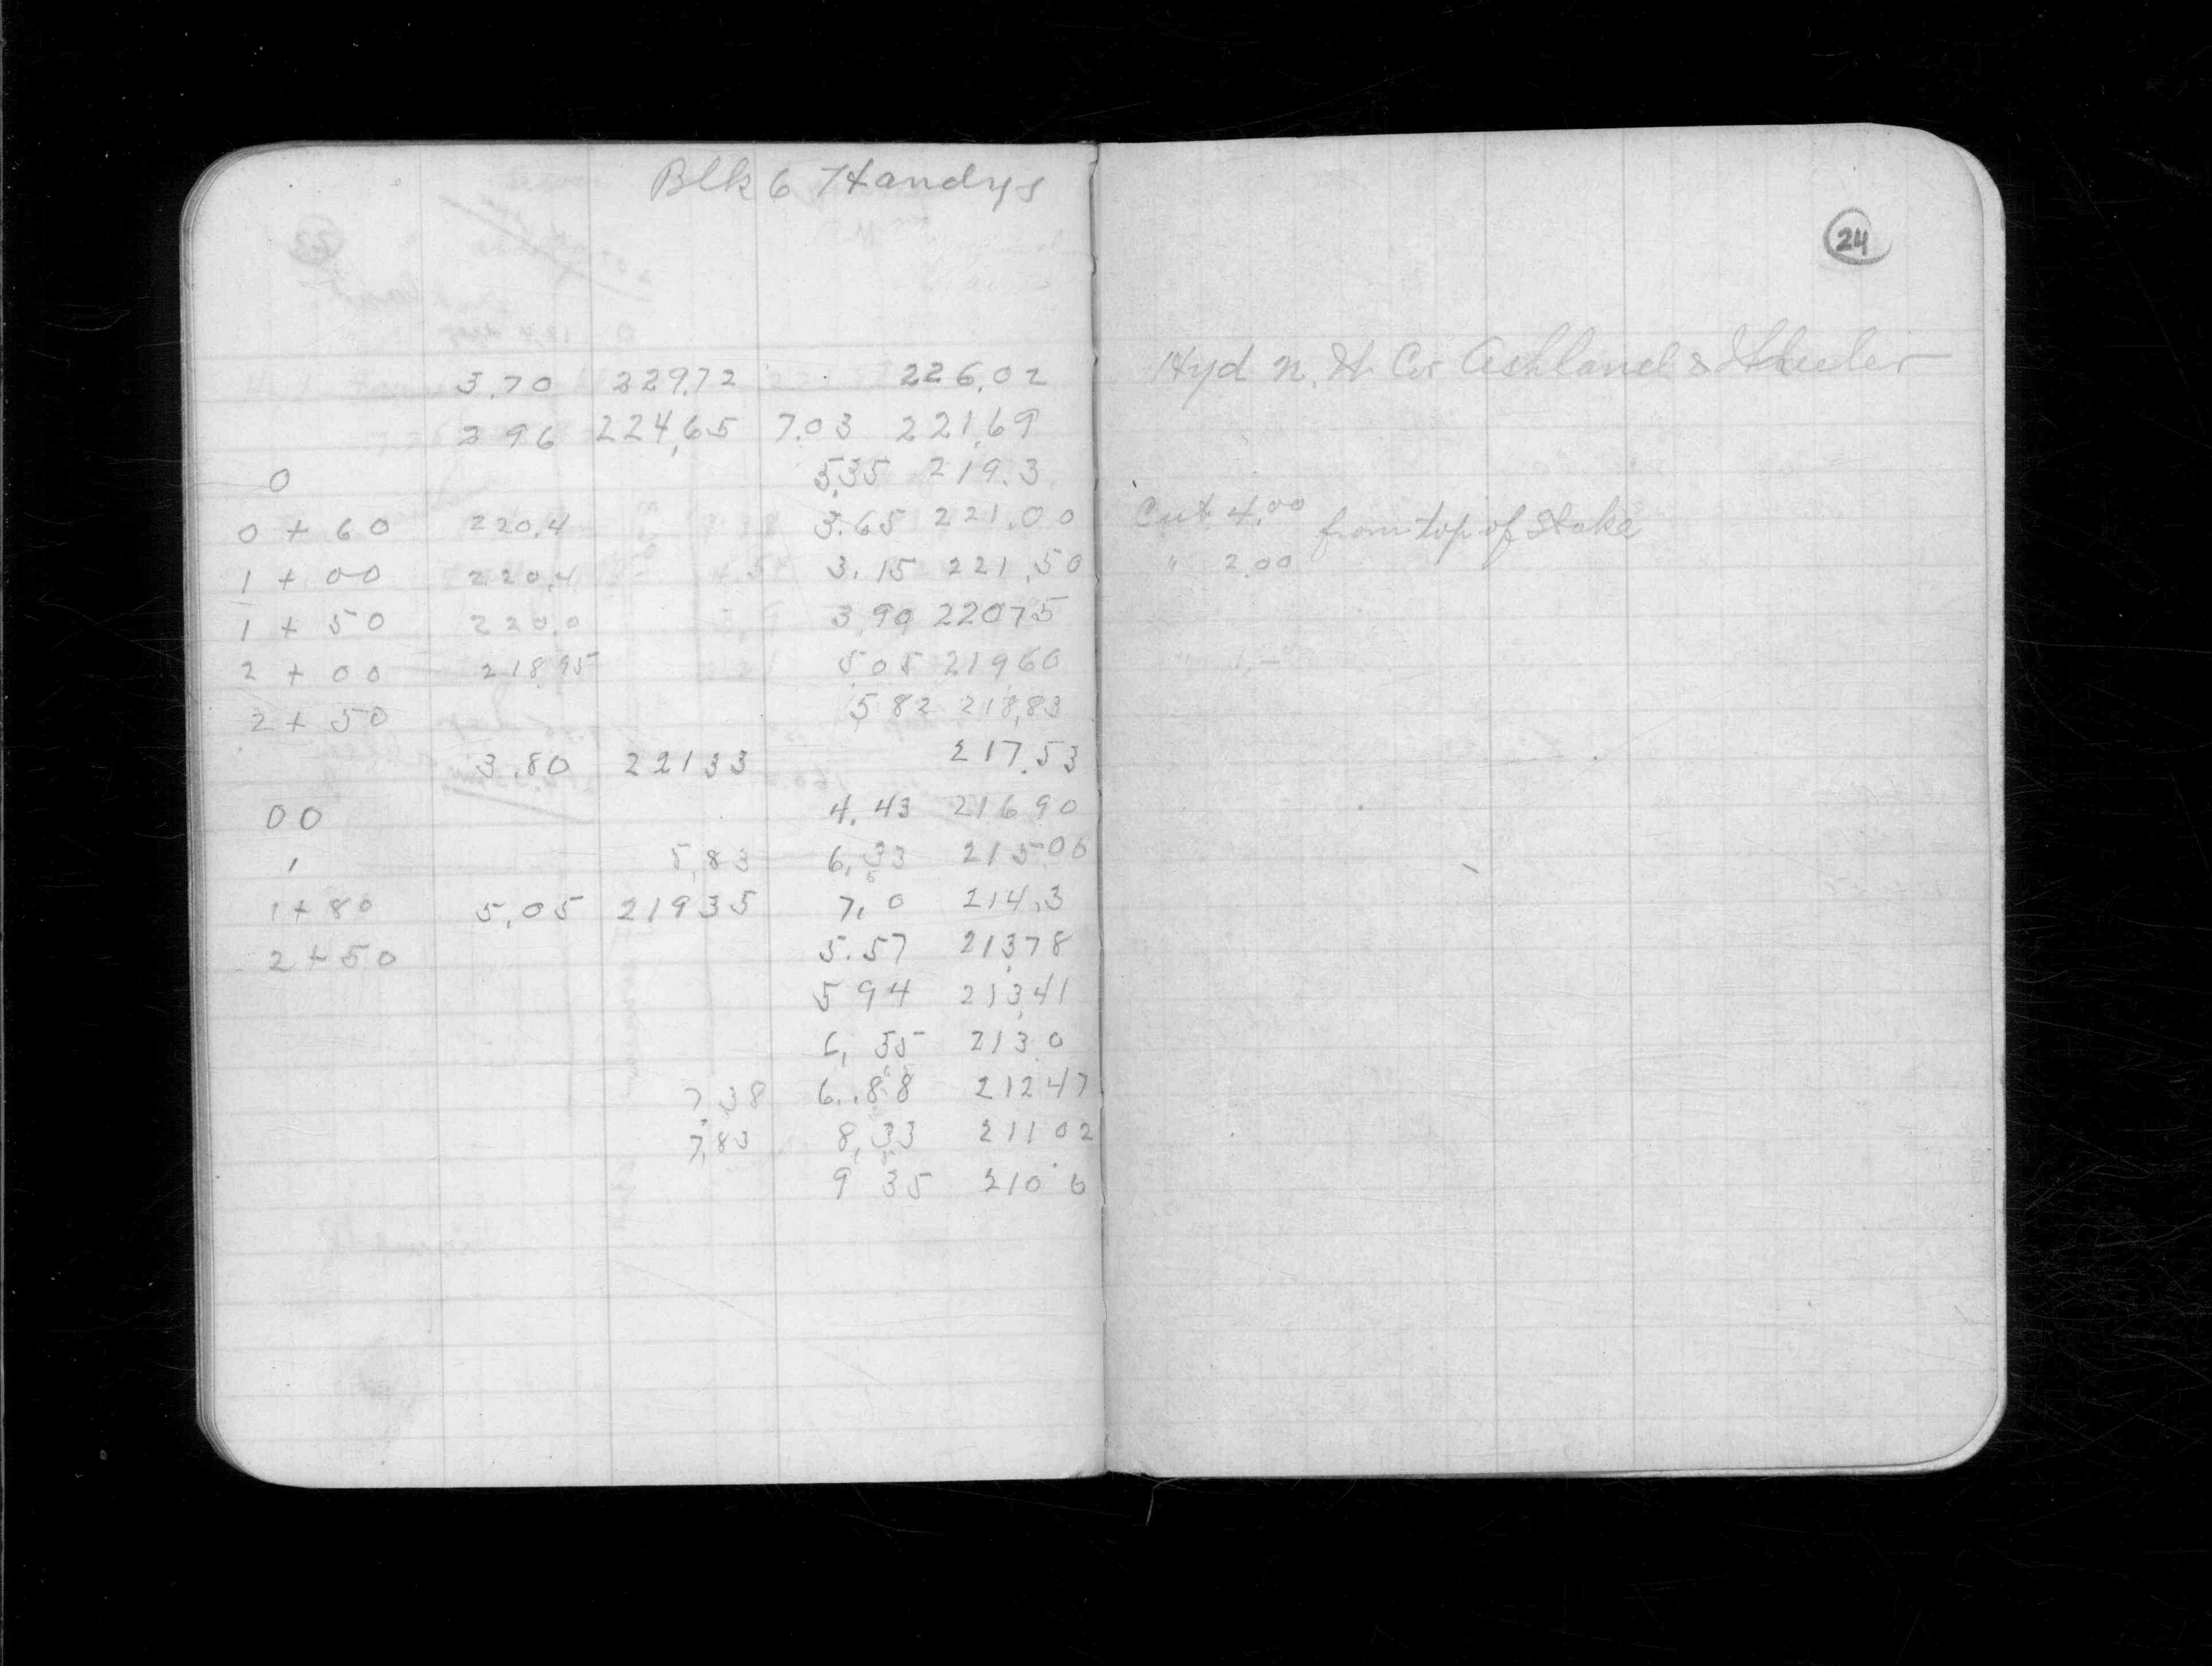 Blk 6 Handys
3.70 229.72 226.02
2 96 224,65 7.03 221.69
0 5.35 219.3
0 + 60 220.4 3.65 221.00
1 + 00 220.4 3.15 221.50
1 + 50 220.0 3 90 220 75
2 + 00 218.95 5.05 219 60
2 + 50 5 82 218.83
3.80 221 33 217.53
00 4.43 216 90
1 5.83 6.33 215 00
1 + 80 5.05 219 35 7.0 214.3
2 + 50 5.57 213.78
5 94 213.41
6, 35 213.0
7.38 6.88 212 47
7.83 8.33 211 02
9 35 210.0
24
Hyd N. W. Cor Ashland &
Cut 4.00 from top of Stake
" 2.00